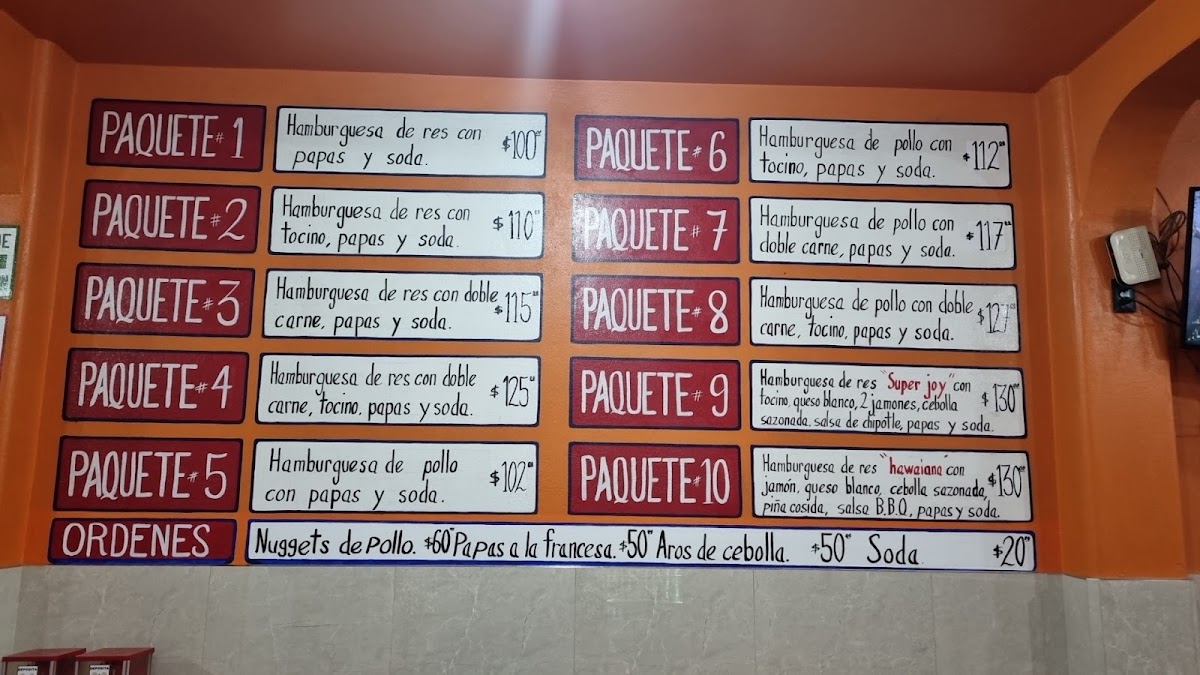 PAQUETE # 1
Hamburguesa de res con
papas y soda. $100°°
PAQUETE # 2
Hamburguesa de res con
tocino, papas y soda. $110°°
PAQUETE # 3
Hamburguesa de res con doble
carne, papas y soda. $115°°
PAQUETE # 4
Hamburguesa de res con doble
carne, tocino, papas y soda. $125°°
PAQUETE # 5
Hamburguesa de pollo
con papas y soda. $102°°
PAQUETE # 6
Hamburguesa de pollo con
tocino, papas y soda. $112°°
PAQUETE # 7
Hamburguesa de pollo con
doble carne, papas y soda. $117°°
PAQUETE # 8
Hamburguesa de pollo con doble
carne, tocino, papas y soda. $127°°
PAQUETE # 9
Hamburguesa de res "Super joy" con
tocino, queso blanco, 2 jamones, cebolla
sazonada, salsa de chipotle, papas y soda. $130°°
PAQUETE # 10
Hamburguesa de res "hawaiana" con
jamón, queso blanco, cebolla sazonada,
piña cosida, salsa B.B.Q, papas y soda. $130°°
ORDENES
Nuggets de pollo. $60°° Papas a la francesa. $50°° Aros de cebolla. $50°° Soda $20°°